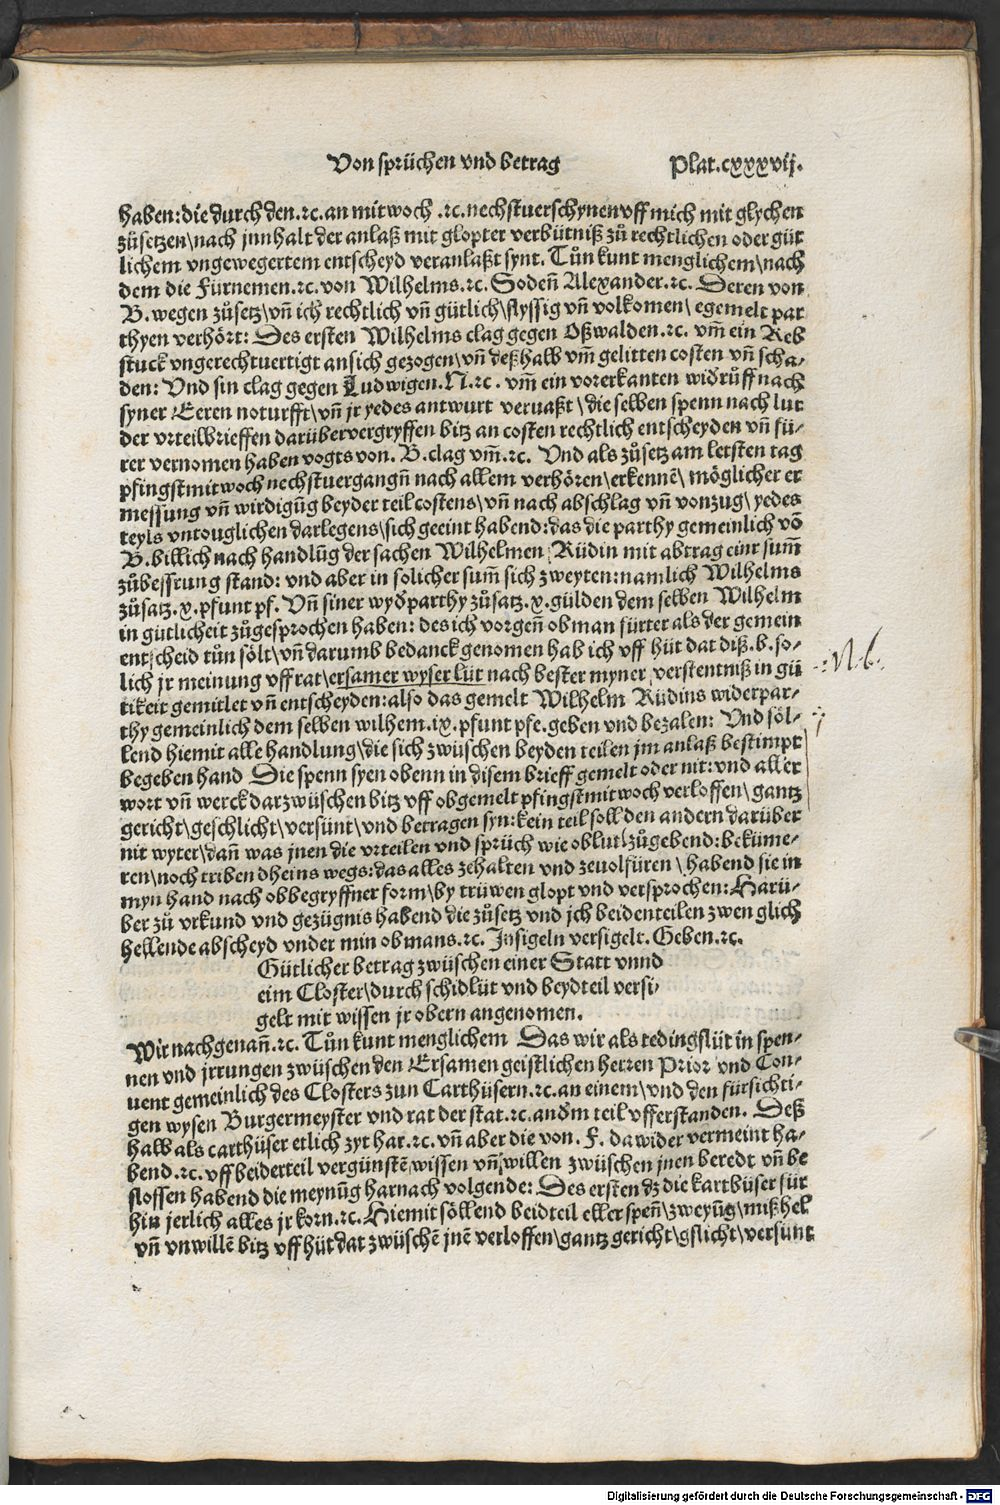 Von sprüchen vnd betrag Plat.cxxxvij.
haben: die durch den .ꝛc. an mitwoch .ꝛc. nechstuerschynen vff mich mit glychen
zůsetzen\ nach jnnhalt der anlaß mit glopter verbütniß zů rechtlichen oder güt
lichem vngewegertem entscheyd veranlaßt synt. Tůn kunt menglichem\ nach
dem die Fürnemen .ꝛc. von Wilhelms .ꝛc. Sodeñ Alexander .ꝛc. Deren von
B. wegen zůsetz\ vñ ich rechtlich vñ gütlich\ flyssig vñ volkomen\ egemelt par
thyen verhört: Des ersten Wilhelms clag gegen Oßwalden .ꝛc. vm̃ ein Reb
stuck vngerechtuertigt an sich gezogen\ vñ deßhalb vm̃ gelitten costen vñ scha-
den: Vnd sin clag gegen Ludwigen. N. ꝛc. vm̃ ein vorerkanten widrůff nach
syner Eeren noturfft\ vñ jr yedes antwurt veruaßt\ die selben spenn nach lut
der vrteilbrieffen darüber vergryffen bitz an costen rechtlich entscheyden vñ fü-
rer vernomen haben vogts von. B. clag vm̃ .ꝛc. Vnd als zůsetz am letsten tag
pfingstmitwoch nechstuergangñ nach allem verhören\ erkennẽ\ möglicher er
messung vñ wirdigũg beyder teil costens\ vñ nach abschlag vñ vonzug\ yedes
teyls vntouglichen darlegens\ sich geeint habend: das die parthy gemeinlich võ
B. billich nach handlũg der sachen Wilhelmen Rüdin mit abtrag einr sum̃
zůbessrung stand: vnd aber in solicher sum̃ sich zweyten: namlich Wilhelms
zůsatz .x. pfunt pf. Vñ siner wyd̕parthy zůsatz .v. gülden dem selben Wilhelm
in gütlicheit zůgesprochen haben: des ich vorgeñ obman fürter als der gemein
entscheid tůn sölt\ vñ darumb bedanck genomen hab ich vff hüt dat diß. b. so-
lich jr meinung vff rat\ ersamer wyser lüt nach bester myner verstentniß in gü
tikeit gemitlet vñ entscheyden: also das gemelt Wilhelm Rüdins widerpar-
thy gemeinlich dem selben wilhem .ix. pfunt pfe. geben vnd bezalen: Vnd söl-
lend hiemit alle handlung\ die sich zwüschen beyden teilen jm anlaß bestimpt
begeben hand Die spenn syen obenn in disem brieff gemelt oder nit: vnd aller
wort vñ werck darzwüschen bitz vff obgemelt pfingstmitwoch verloffen\ gantz
gericht\ geschlicht\ versünt\ vnd betragen syn: kein teil soll den andern darüber
nit wyter\ dañ was jnen die vrteilen vnd sprüch wie oblut\ zůgebend: beküme-
ren\ noch triben dheins wegs: das alles zehalten vnd zeuolfüren\ habend sie in
myn hand nach obbegryffner form\ by trüwen glopt vnd versprochen: Harü-
ber zů vrkund vnd gezügnis habend die zůsetz vnd jch beiden teilen zwen glich
hellende abscheyd vnder min obmans .ꝛc. Insigeln versigelt. Geben .ꝛc.
Gütlicher betrag zwüschen einer Statt vnnd
eim Closter\ durch schidlüt vnd beydteil versi-
gelt mit wissen jr obern angenomen.
Wir nachgenañ .ꝛc. Tůn kunt menglichem Das wir als tedingslüt in spen-
nen vnd jrrungen zwüschen den Ersamen geistlichen herren Prior vnd Con-
uent gemeinlich des Closters zun Carthüsern .ꝛc. an einem\ vnd den fürsichti-
gen wysen Burgermeyster vnd rat der stat .ꝛc. and̕m teil vfferstanden. Deß
halb als carthüser etlich zyt har .ꝛc. vñ aber die von. F. da wider vermeint ha-
bend .ꝛc. vff beiderteil vergünstẽ wissen vñ willen zwüschen jnen beredt vñ be
slossen habend die meynũg harnach volgende: Des ersten dz die kartbüser für
hin jerlich alles jr korn .ꝛc. Hiemit söllend beidteil eller speñ\ zweyũg\ mißhel
vñ vnwillẽ bitz vff hüt dat zwüschẽ jnẽ verloffen\ gantz gericht\ gslicht\ versunt
N.b.
Digitalisierung gefördert durch die Deutsche Forschungsgemeinschaft - DFG